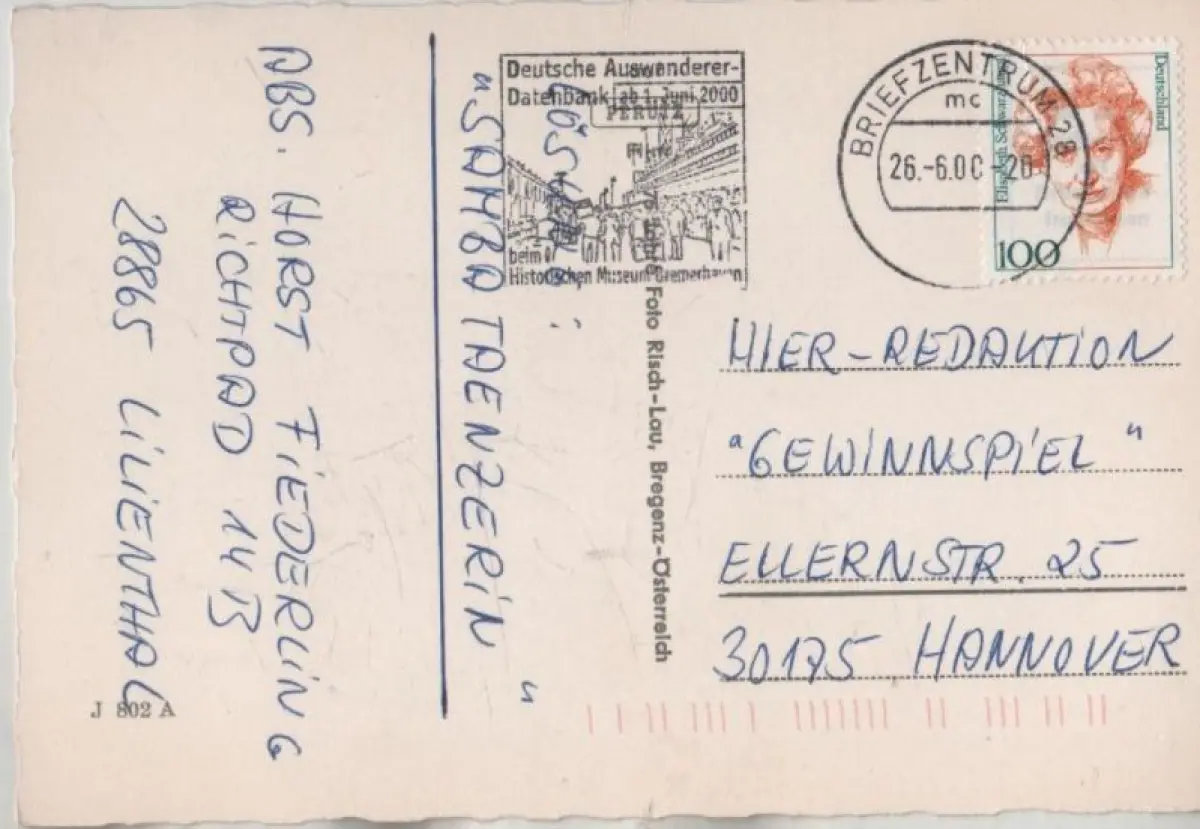 ABS. HORST FIEDERLING
RICHTPAD 14 B
28865 LILIENTHAL
LÖSUNG:
"SAMBA TAENZERIN"
Deutsche Auswanderer-
Datenbank ab 1. Juni 2000
beim
Historischen Museum Bremerhaven
PERUTZ
Foto Risch-Lau, Bregenz-Österreich
BRIEFZENTRUM 28
mc
26.-6.00-20
Deutschland
Elisabeth Schwarz
100
HIER-REDAKTION
"GEWINNSPIEL"
ELLERNSTR. 25
30175 HANNOVER
J 802 A